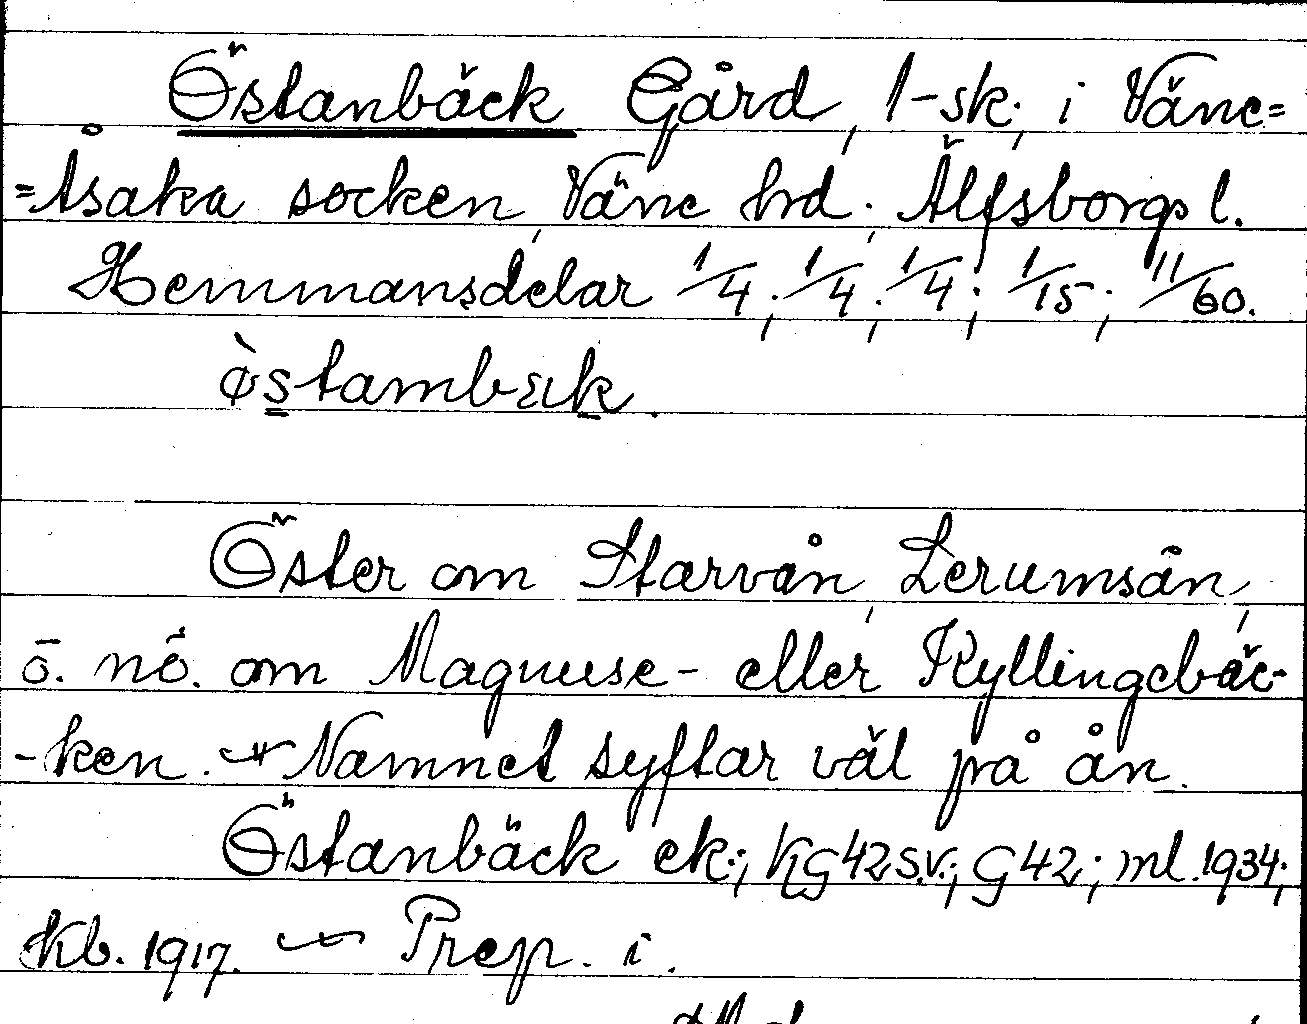 Östanbäck Gård, 1-sk; i Väne=
=Åsaka socken, Väne hd; Älfsborgs l.
Hemmansdelar 1/4; 1/4; 1/4; 1/15; 11/60.
Öster om Starvån, Lerumsån,
ö. nö. om Magnuse- eller Kyllingebäc-
-ken. Namnet syftar väl på ån.
Östanbäck ek; KG42s.v.; G42; ml. 1934;
Kb. 1917. Prep. i.